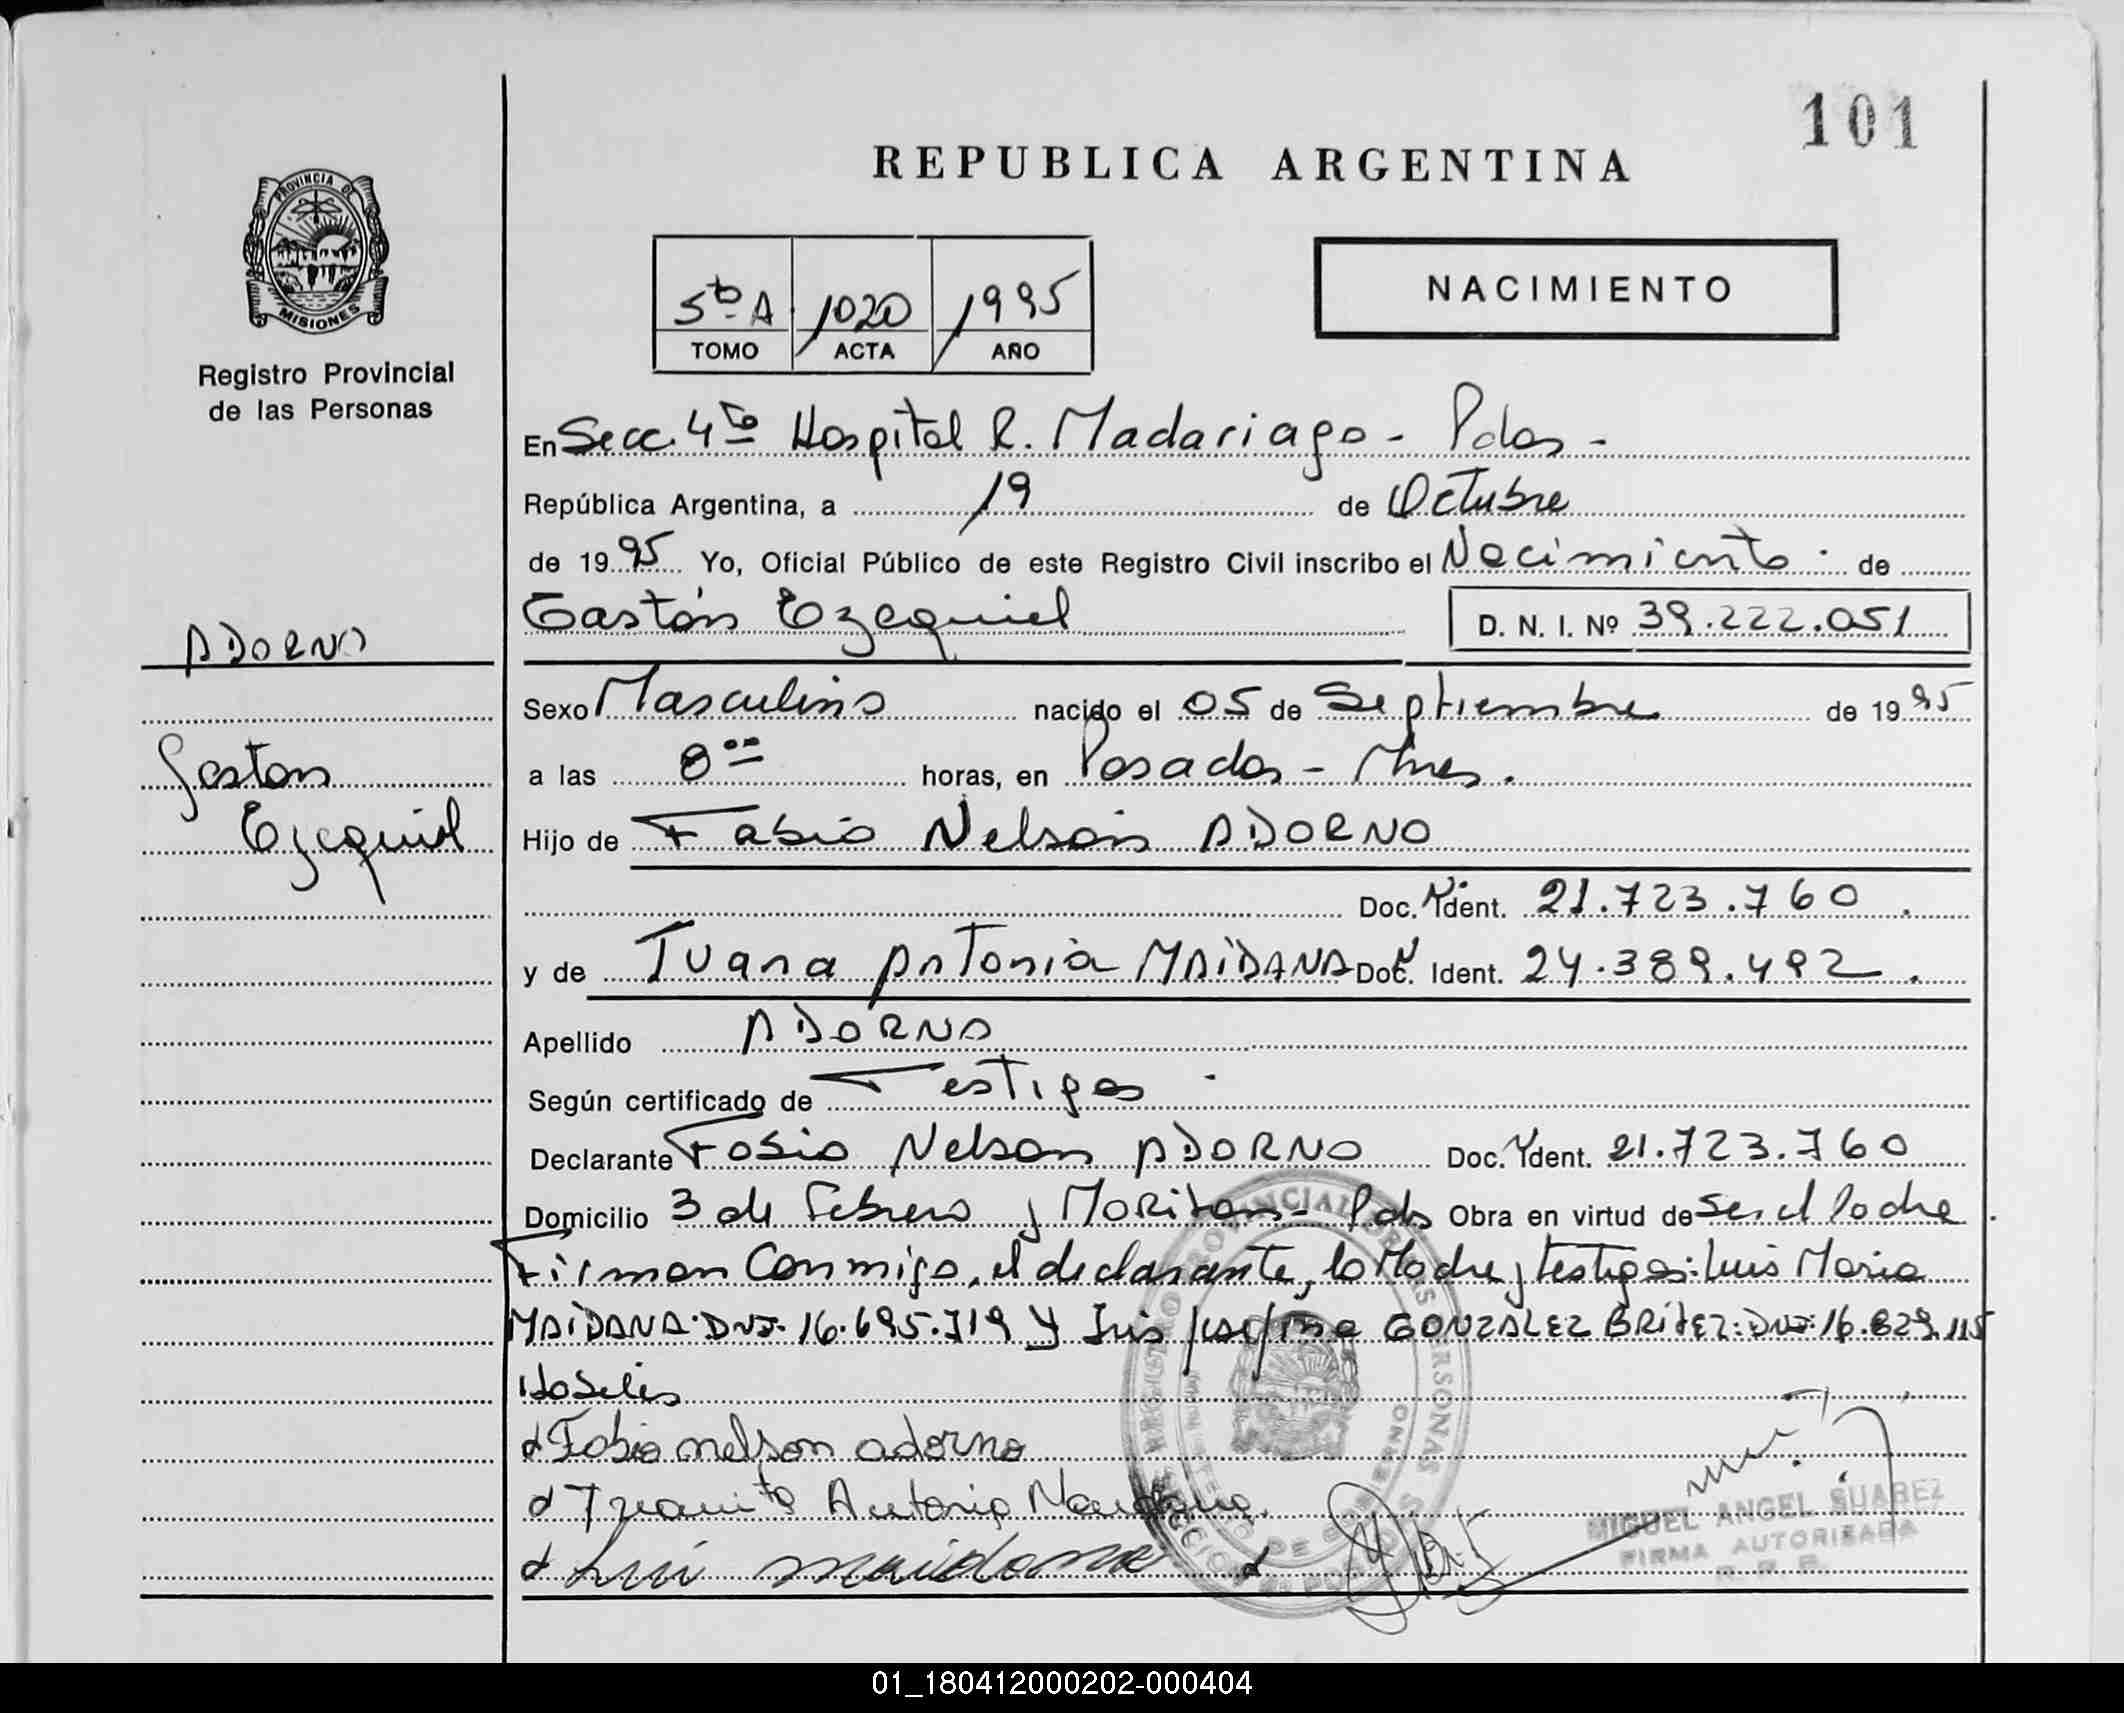 101
REPUBLICA ARGENTINA
PROVINCIA DE
MISIONES
Registro Provincial
de las Personas
5to A 1020 1995
TOMO ACTA AÑO
NACIMIENTO
En Secc. 4ta Hospital R. Madariaga - Pdas -
República Argentina, a 19 de Octubre
de 1995 Yo, Oficial Público de este Registro Civil inscribo el Nacimiento de
Gastón Ezequiel D. N. I. Nº 39.222.051
ADORNO
Gaston
Ezequiel
Sexo Masculino nacido el 05 de Septiembre de 1995
a las 8 00 horas, en Posadas - Mnes.
Hijo de Fabio Nelson ADORNO
Doc. Ident. 21.723.760
y de Juana Antonia MAIDANA Doc. Ident. 24.389.492
Apellido ADORNO
Según certificado de Testigos
Declarante Fabio Nelson ADORNO Doc. Ident. 21.723.760
Domicilio 3 de Febrero y - Pdas Obra en virtud de ser el Padre
Firman Conmigo, el declarante, la Madre y testigos: Luis Maria
MAIDANA. DNI. 16.695.719 y GONZALEZ BRITEZ: DNI: 16.829.115
Hábiles
Fabio nelson adorno
Juanita Antonia Maidana
Luis maidana
MIGUEL ANGEL SUAREZ
FIRMA AUTORIZADA
01_180412000202-000404